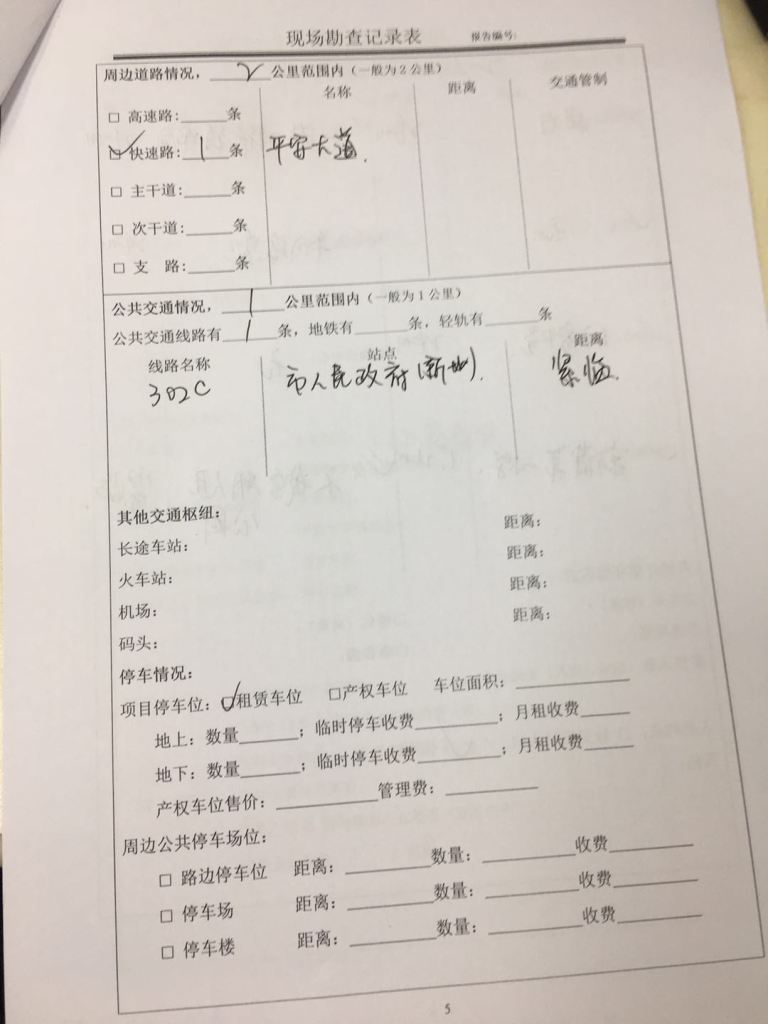 现场勘查记录表 报告编号:
周边道路情况, 2 公里范围内（一般为2公里）
名称 距离 交通管制
□ 高速路:_____条
☑ 快速路: 1 条 平安大道.
□ 主干道:_____条
□ 次干道:_____条
□ 支 路:_____条
公共交通情况, 1 公里范围内（一般为1公里）
公共交通线路有 1 条, 地铁有_____条, 轻轨有_____条
线路名称 站点 距离
302C 市人民政府(新地). 紧临.
其他交通枢纽:
长途车站: 距离:
火车站: 距离:
机场: 距离:
码头: 距离:
停车情况:
项目停车位: ☑租赁车位 □产权车位 车位面积:__________
地上: 数量_____; 临时停车收费_____; 月租收费_____
地下: 数量_____; 临时停车收费_____; 月租收费_____
产权车位售价:__________管理费:__________
周边公共停车场位:
□ 路边停车位 距离:_____数量:_____收费_____
□ 停车场 距离:_____数量:_____收费_____
□ 停车楼 距离:_____数量:_____收费_____
5